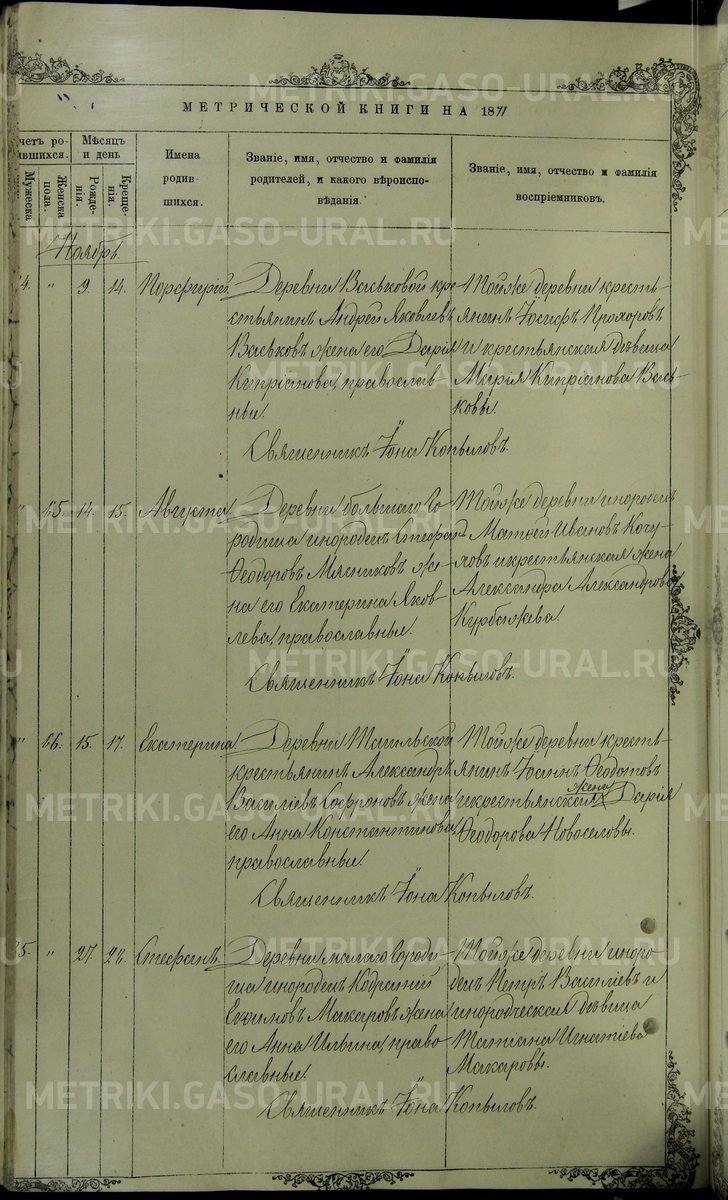 МЕТРИЧЕСКОЙ КНИГИ НА 1871
четъ ро-
ившихся.
Мужеска
Женска
пола.
Мѣсяцъ
и день
Рожде-
нія.
Креще-
нія.
Имена
родив
шихся.
Званіе, имя, отчество и фамилія
родителей, и какого вѣроиспо-
вѣданія.
Званіе, имя, отчество и фамилія
воспріемниковъ.
Ноябрь.
4. " 9. 14. Порфирій.
Деревни Васьковой кре-
стьянинъ Андрей Яковлевъ
Васьковъ жена его Дарія
Кипріанова, православ-
ные.
Тойже деревни кресть-
янинъ Іосифъ Прохоровъ
и крестьянская дѣвица
Марія Кипріанова Вась-
ковы.
Священникъ Іона Копыловъ.
" 65. 14. 15. Августа.
Деревни большаго Го-
родища инородецъ Стефан
Ѳеодоровъ Мясниковъ же-
на его Екатерина Яков-
лева, православные.
Тойже деревни инородец
Матѳей Ивановъ
и крестьянская жена
Александра Александрова
Священникъ Іона Копыловъ.
" 66. 15. 17. Екатерина.
Деревни Тагильской
крестьянинъ Александръ
Василіевъ Софроновъ жена
его Анна Константинова,
православные.
Тойже деревни кресть-
янинъ Іоаннъ Ѳеодотовъ
и крестьянская жена Дарія
Ѳеодорова Новоселовы.
Священникъ Іона Копыловъ.
5. " 27. 28. Стефанъ.
Деревни малаго Городи-
ща инородецъ Кодратій
Евфимовъ Макаровъ жена
его Анна Ильина, право-
славные.
Тойже деревни иноро-
децъ Петръ Василіевъ и
инородческая дѣвица
Татіана Игнатіева
Макаровы.
Священникъ Іона Копыловъ.
METRIKI.GASO-URAL.RU